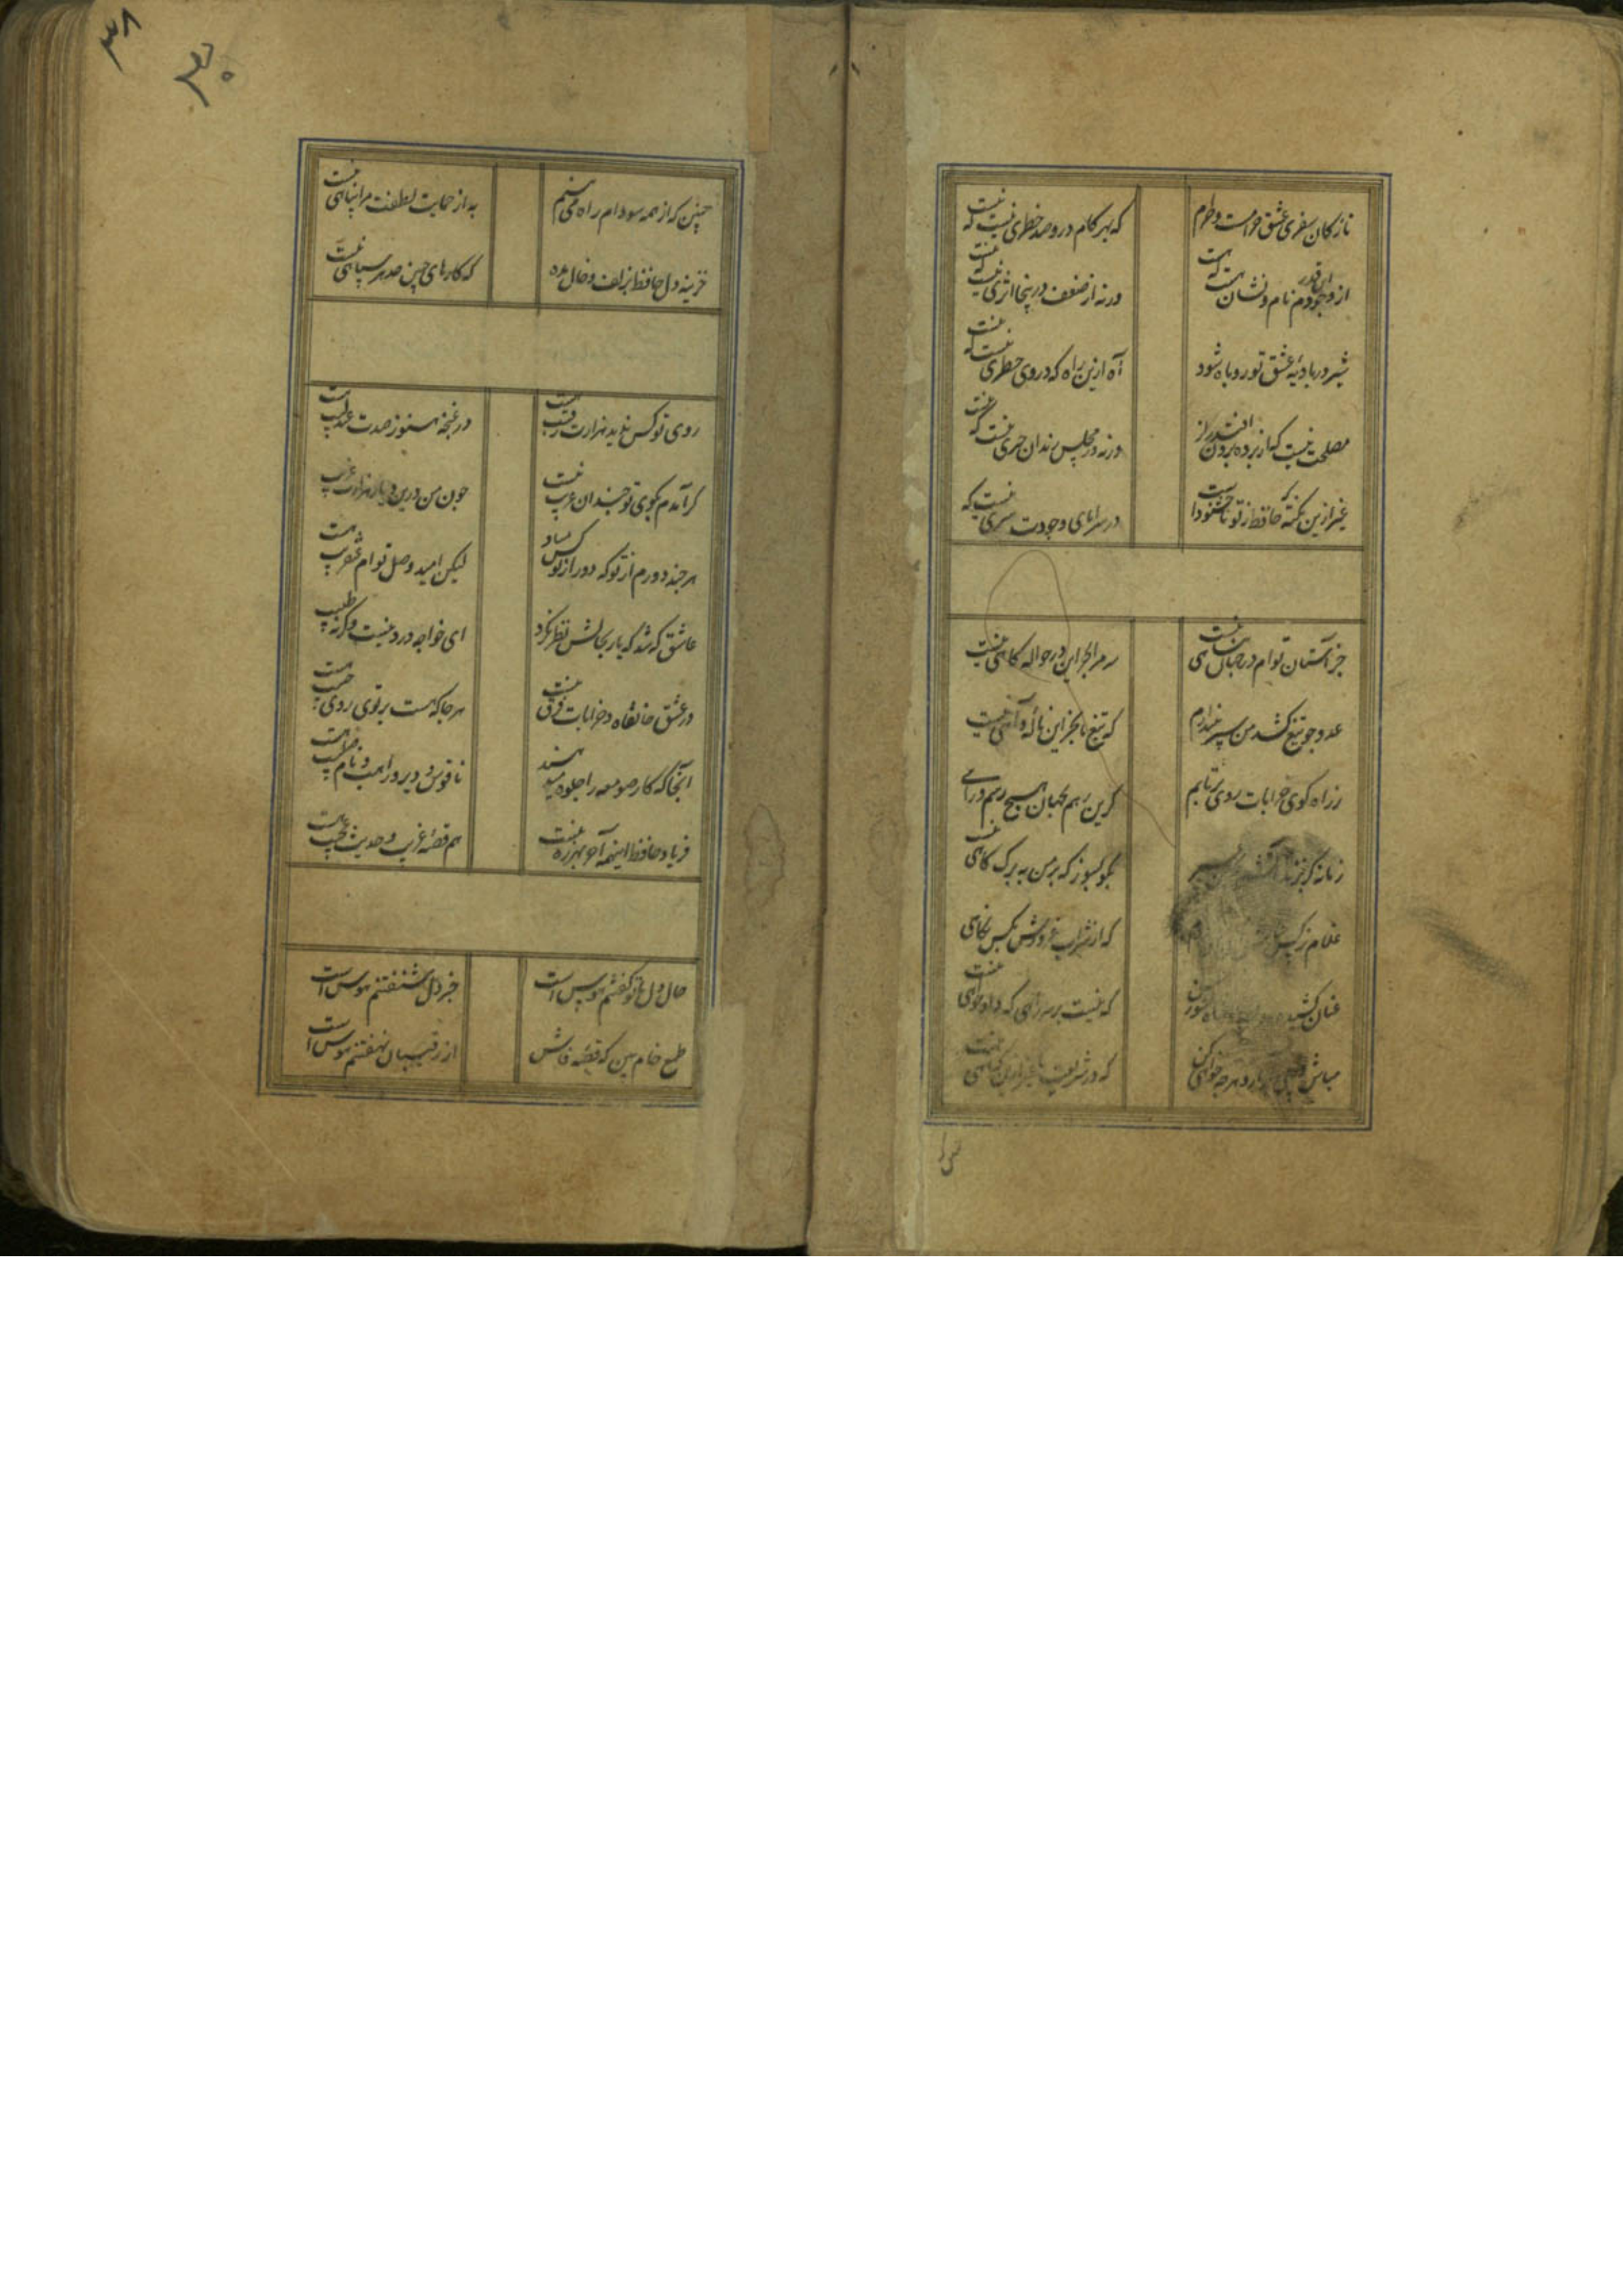 نازکان سفری عشق حرامست و حرم که بهر کام درو صد خطری نیست که نیست
از وجودم این قدر نام و نشان هست که هست ورنه از ضعف درینجا اثری نیست که نیست
شیر در بادیهٔ عشق تو روباه شود آه ازین راه که در وی خطری نیست که نیست
مصلحت نیست که از پرده برون افتد راز ورنه در مجلس رندان خبری نیست که نیست
غیر ازین نکته که حافظ ز تو ناخشنود است در سراپای وجودت هنری نیست که نیست
جز آستان توام در جهان پناهی نیست سر مرا بجز این در حواله کاهی نیست
عدو چو تیغ کشد من سپر بیندازم که تیغ ما بجز این ناله و آهی نیست
ز راه کوی خرابات روی برتابم کزین رهم بجهان هیچ رسم و راهی
زمانه کر بزند آتشم بگو بسوز که بر من به برک کاهی نیست
غلام نرکس که از شراب غرورش بکس نکاهی
عنان کشیده کشور حسن که نیست بر سر راهی که داد خواهی نیست
مباش در پی و هرچه خواهی کن که در شریعت ما غیر ازین کناهی نیست
چنین که از همه سو دام راه می بینم به از حمایت لطفت مرا پناهی نیست
خزینه دل حافظ بزلف و خال مده که کارهای چنین حد هر سیاهی نیست
روی تو کس ندید هزارت رقیب هست در غنچه هنوز صدت عندلیب هست
کر آمدم بکوی تو چندان غریب نیست چون من درین دیار هزاران غریب
هر چند دورم از تو که دور از تو کس مباد لیکن امید وصل توام عنقریب هست
عاشق که شد که یار بحالش نظر نکرد ای خواجه درد نیست وکرنه طبیب
در عشق خانقاه و خرابات فرق نیست هر جا که هست پرتوی روی حبیب هست
آنجا که کار صومعه را جلوه میدهند ناقوس و دیر و راهب و نام صلیب هست
فریاد حافظ اینهمه آخر بهرزه نیست هم قصهٔ غریب و حدیث عجیب هست
حال دل با تو کفتنم هوس است خبر دل شنفتنم هوس است
طمع خام بین که قصهٔ فاش از رقیبان نهفتنم هوس است